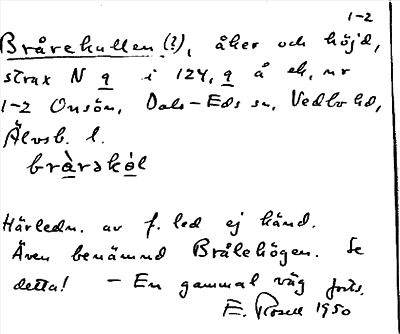 1-2
Brårekullen (?), åker och höjd,
strax N q i 124, q å ek. nr
1-2 Onsön, Dals-Eds sn, Vedbo hd,
Älvsb. l.
bràrəkól
Härledn. av f. led ej känd.
Även benämnd Brålehögen. Se
detta! - En gammal väg forts.
E. Rosell 1950